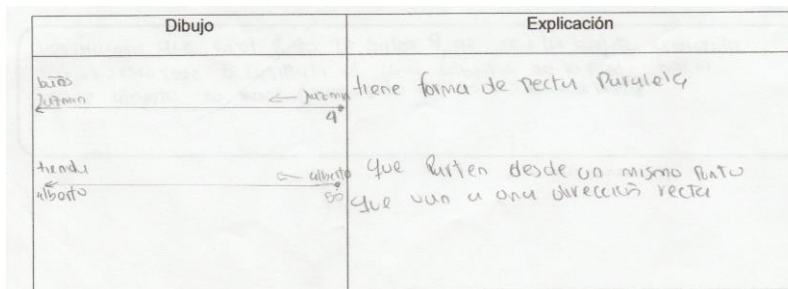 Dibujo
Explicación
baño
Jazmin
← Jazmin
4°
tiene forma de recta Paralela
tienda
alberto
← alberto
5°
que Parten desde un mismo Punto
que van a una dirección recta